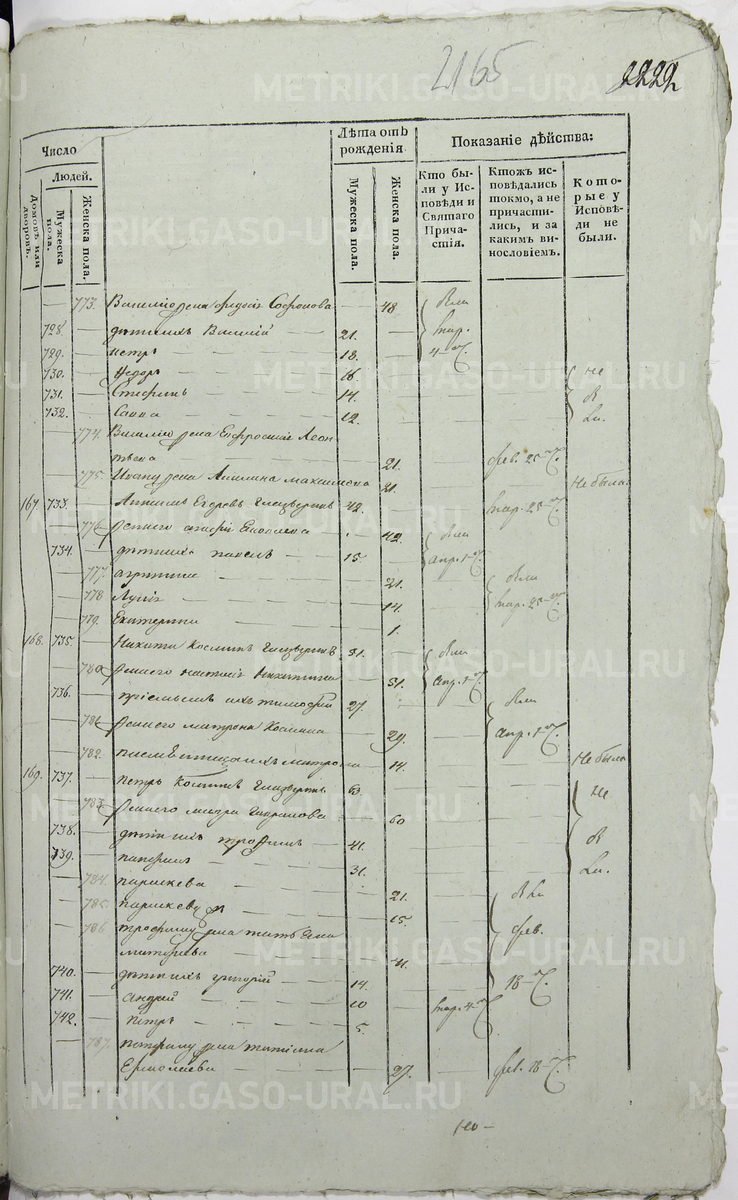 2165
2222
Число
Лѣта отъ рожденія.
Показаніе дѣйства:
Людей.
Домовъ или дворовъ.
Мужеска пола.
Женска пола.
Мужеска пола.
Женска пола.
Кто были у Исповѣди и Святаго Причастія.
Ктожъ исповѣдались токмо, а не причастились, и за какимъ винословіемъ.
Которые у Исповѣди не были.
773. Василію жена Софонова 48 были
728. дѣти ихъ Василій 21. мар.
729. петръ 18. 4-
730. Федоръ 16 не
731. Стефанъ 14. б
732. Савва 12. ли.
774. Василію жена Ефросинія Леон
тьева 21. фев. 25-
775. Ивану жена Акилина максимова 21. Не была.
167. 733. Антипъ Егоровъ 42. мар. 25
776. жена его Яковлева 42. были
734. дѣти ихъ павелъ 15. апр. 1-
777. агрипина 21. были
778 Лукія 14. мар. 25
779. Екатерина 1.
168. 735. Никита Косминъ 51. были
780 жена его настасія Никитина 51. апр. 1-
736. пріемышъ ихъ тимофей 27. были
781. жена его матрона Космина 29. апр. 1
782. племянница ихъ матрона 14. Не была
169. 737. петръ Косминъ 63. не
783. жена его мавра Гаврилова 60
738. дѣти ихъ трофимъ 41. б
739. панфилъ 31. ли.
784. параскева 21. были
785. параскева 15. фев.
786. трофиму жена татьяна
митрева 41.
740. дѣти ихъ григорій 14. 18-
741. андрей 10 мар. 4-
742. петръ 5.
787. панфилу жена татіана
Ермолаева 27. фев. 18-
METRIKI.GASO-URAL.RU